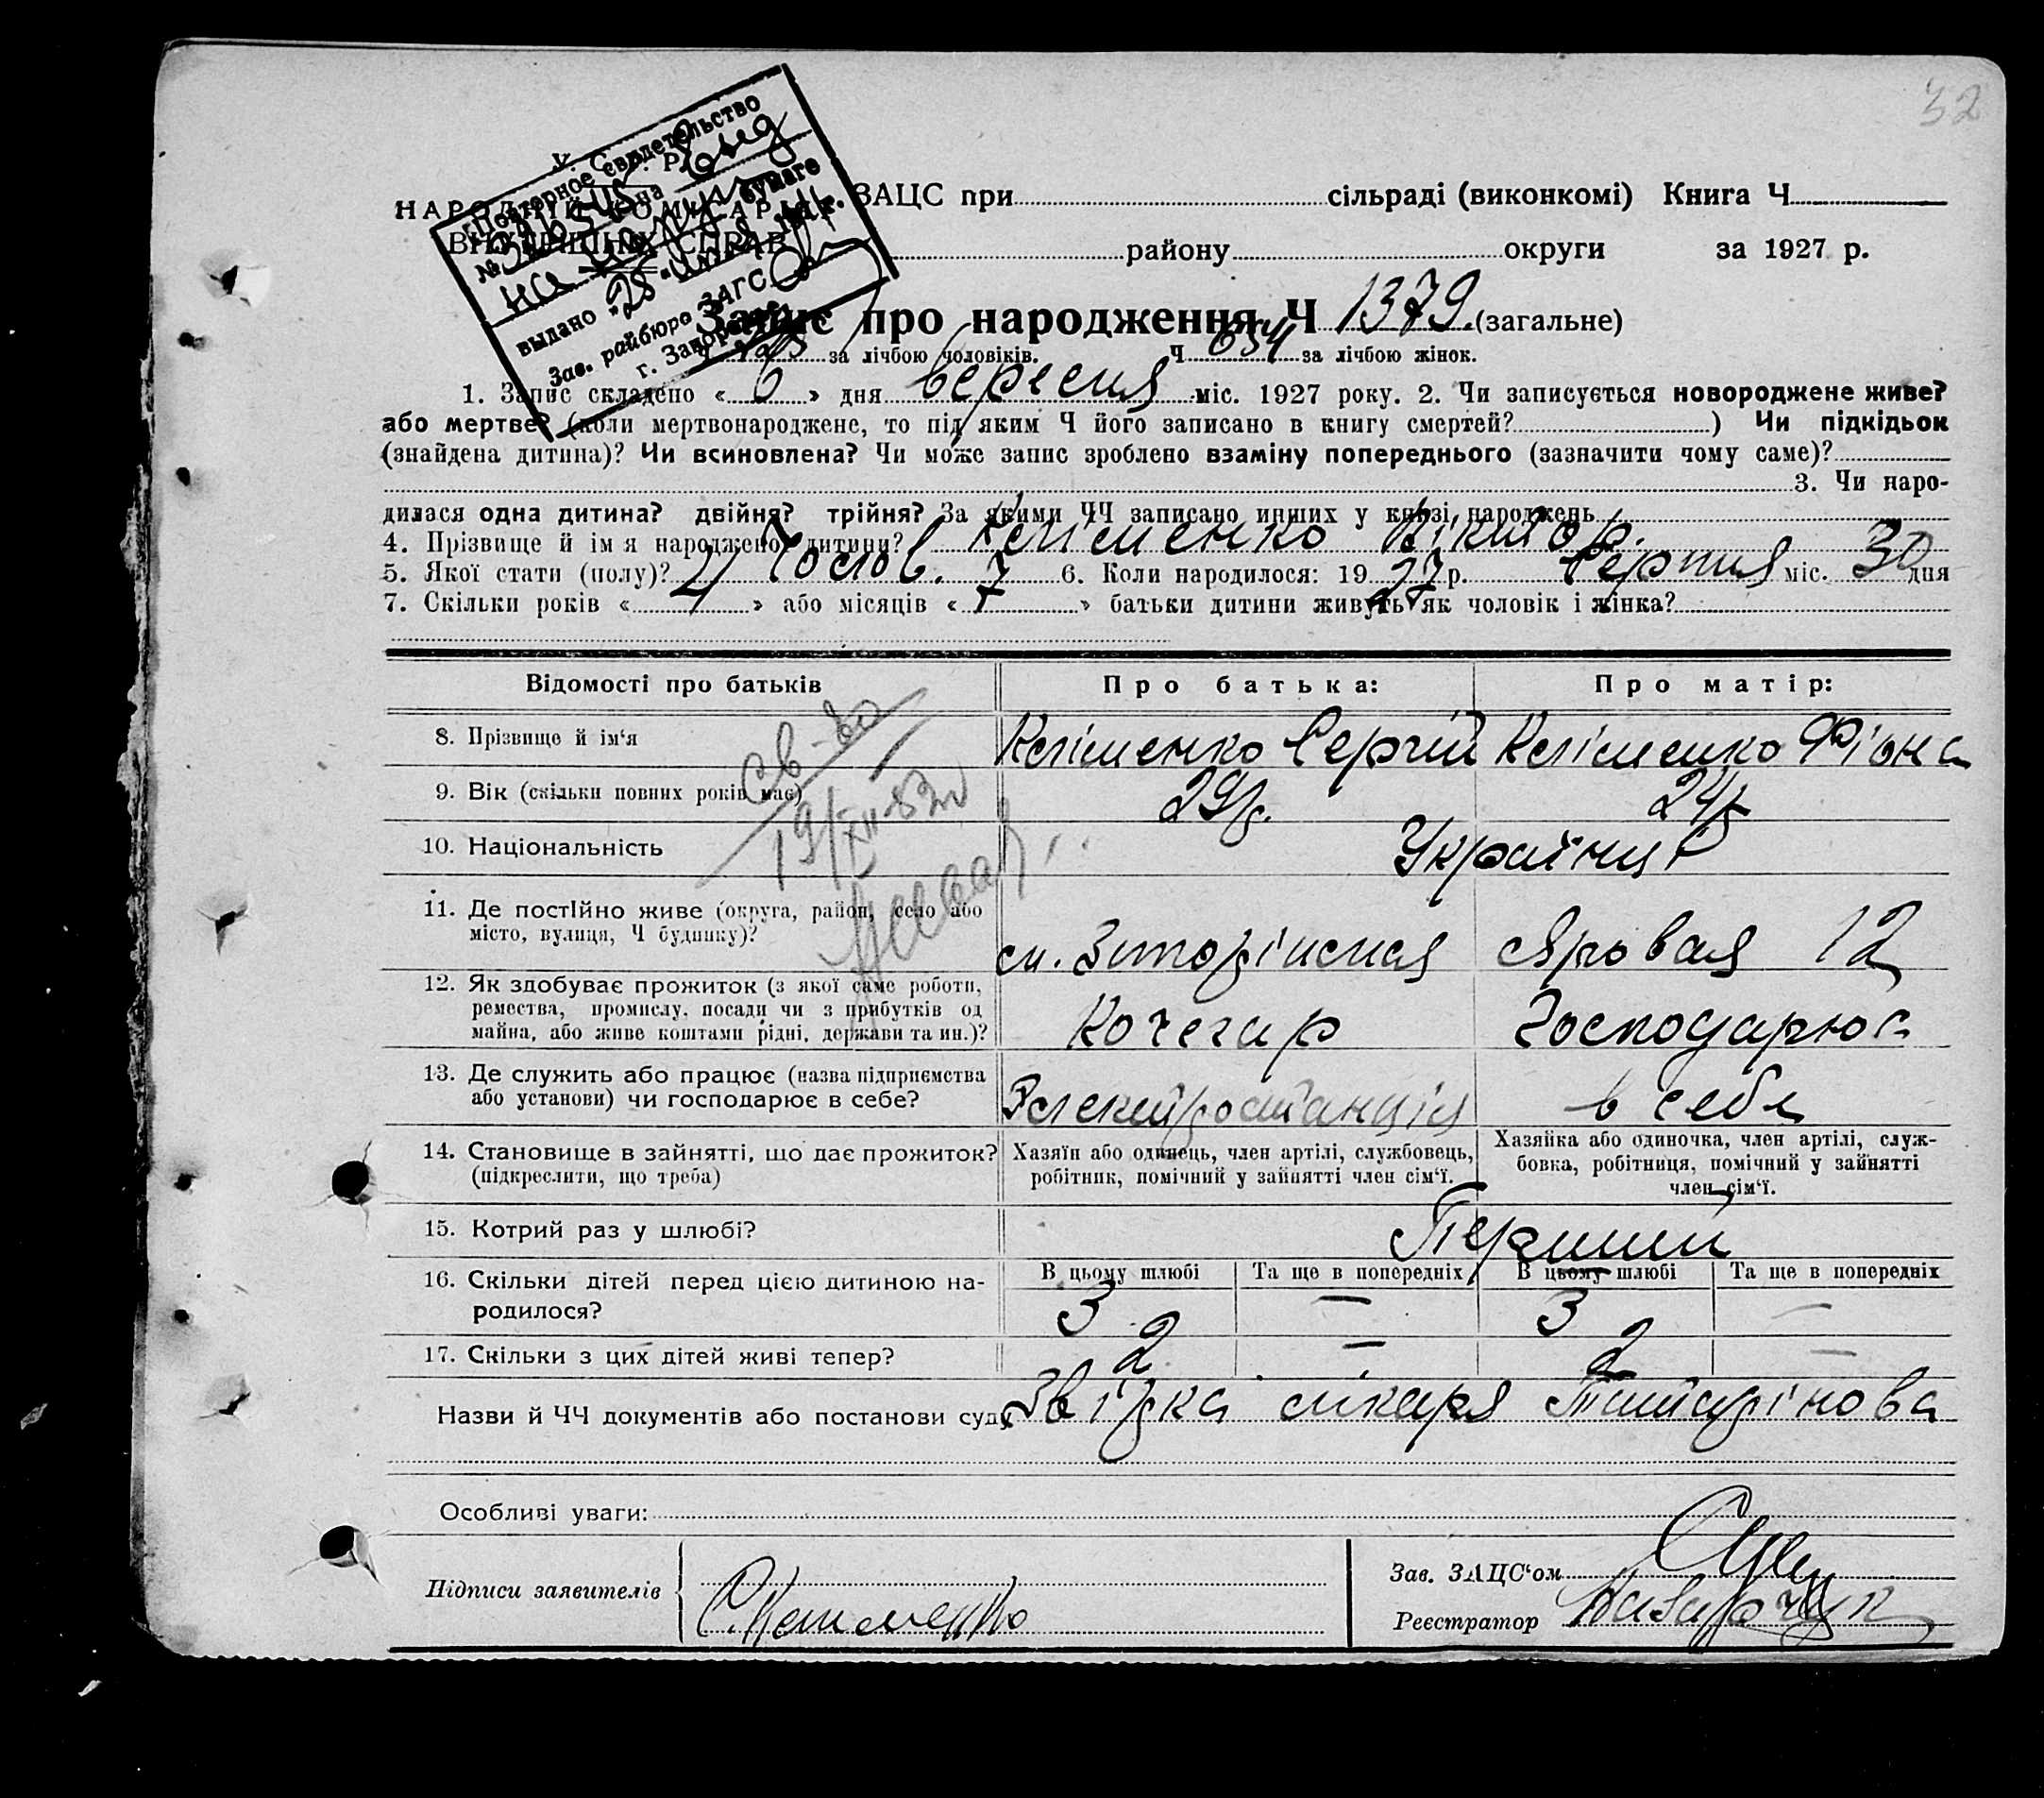 32
У. С. Р. Р.
НАРОДНИЙ КОМІСАРІЯТ
ВНУТРІШНІХ СПРАВ
Повторное свидетельство
№ на
бумаге
выдано "28" г.
Зав. райбюро ЗАГС
г. Запорожье
ЗАЦС при сільраді (виконкомі) Книга Ч
району округи за 1927 р.
Запис про народження Ч 1379. (загальне)
за лічбою чоловіків. Ч 654 за лічбою жінок.
1. Запис складено « 6 » дня вересня міс. 1927 року. 2. Чи записується новороджене живе?
або мертве? (коли мертвонароджене, то під яким Ч його записано в книгу смертей? ) Чи підкідьок
(знайдена дитина)? Чи всиновлена? Чи може запис зроблено взаміну попереднього (зазначити чому саме)?
3. Чи наро-
дилася одна дитина? двійня? трійня? За якими ЧЧ записано инших у книзі народжень
4. Прізвище й імя народженої дитини? Кліменко Віктор.
5. Якої стати (полу)? Чолов. 6. Коли народилося: 1927 р. Серпня міс. 30 дня
7. Скільки років « 7 » або місяців « » батьки дитини живуть як чоловік і жінка?
Відомості про батьків Про батька: Про матір:
8. Прізвище й ім'я Кліменко Сергій Кліменко Фіона
9. Вік (скільки повних років має) 29 р. 24 р.
Св-во
19/XII-53
10. Національність Українці
11. Де постійно живе (округа, район, село або
місто, вулиця, Ч будинку)? Яровая 12
12. Як здобуває прожиток (з якої саме роботи,
ремества, промислу, посади чи з прибутків од
майна, або живе коштами рідні, держави та ин.)? Кочегар Господарює
13. Де служить або працює (назва підприємства
або установи) чи господарює в себе? Электростанція в себе
14. Становище в зайнятті, що дає прожиток?
(підкреслити, що треба)
Хазяїн або одинець, член артілі, службовець,
робітник, помічний у зайнятті член сім'ї.
Хазяйка або одиночка, член артілі, служ-
бовка, робітниця, помічний у зайнятті
член сім'ї.
15. Котрий раз у шлюбі? Перший
16. Скільки дітей перед цією дитиною на-
родилося?
В цьому шлюбі Та ще в попередніх В цьому шлюбі Та ще в попередніх
3 — 3 —
17. Скільки з цих дітей живі тепер? 2 — 2 —
Назви й ЧЧ документів або постанови суду Звідка лікаря Татарінова
Особливі уваги:
Підписи заявителів С. Клименко
Зав. ЗАЦС'ом
Реєстратор Назарчук